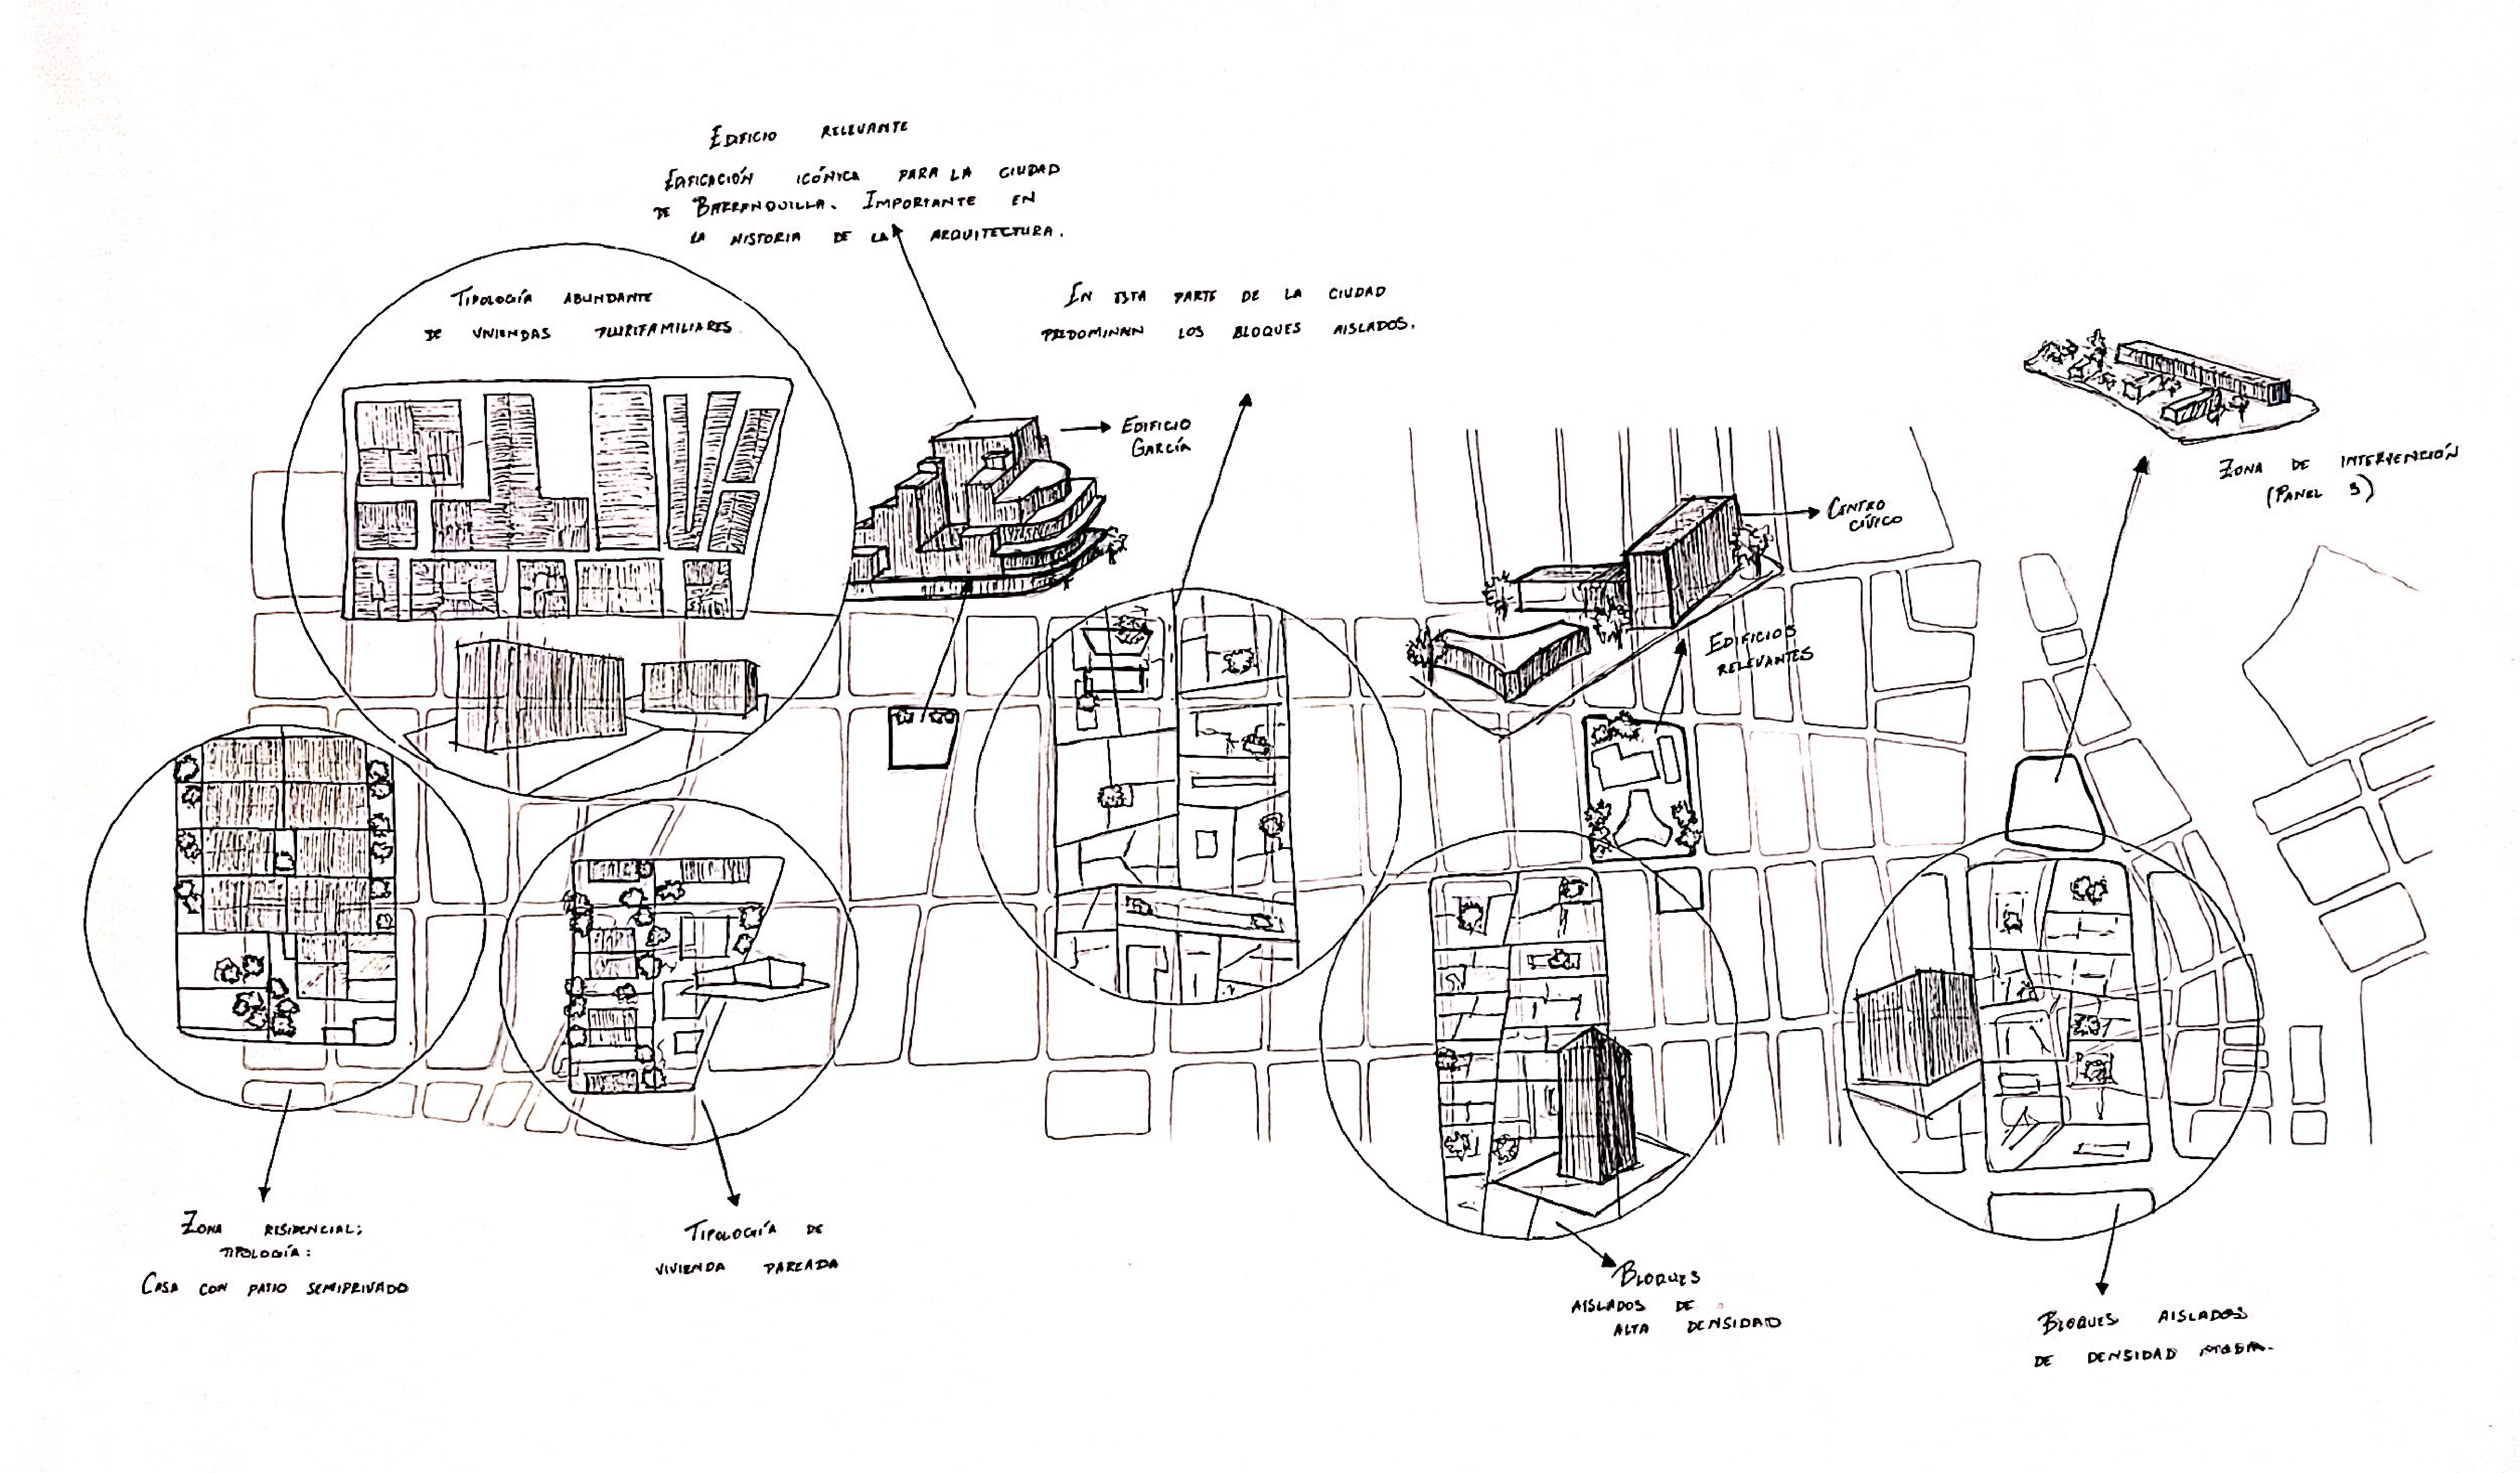 EDIFICIO RELEVANTE
EDIFICACIÓN ICÓNICA PARA LA CIUDAD
DE BARRANQUILLA. IMPORTANTE EN
LA HISTORIA DE LA ARQUITECTURA.
TIPOLOGÍA ABUNDANTE
DE VIVIENDAS PLURIFAMILIARES.
EN ESTA PARTE DE LA CIUDAD
PREDOMINAN LOS BLOQUES AISLADOS.
EDIFICIO
GARCÍA
ZONA DE INTERVENCIÓN
(PANEL 3)
CENTRO
CÍVICO
EDIFICIOS
RELEVANTES
ZONA RESIDENCIAL;
TIPOLOGÍA:
CASA CON PATIO SEMIPRIVADO
TIPOLOGÍA DE
VIVIENDA PAREADA
BLOQUES
AISLADOS DE
ALTA DENSIDAD
BLOQUES AISLADOS
DE DENSIDAD